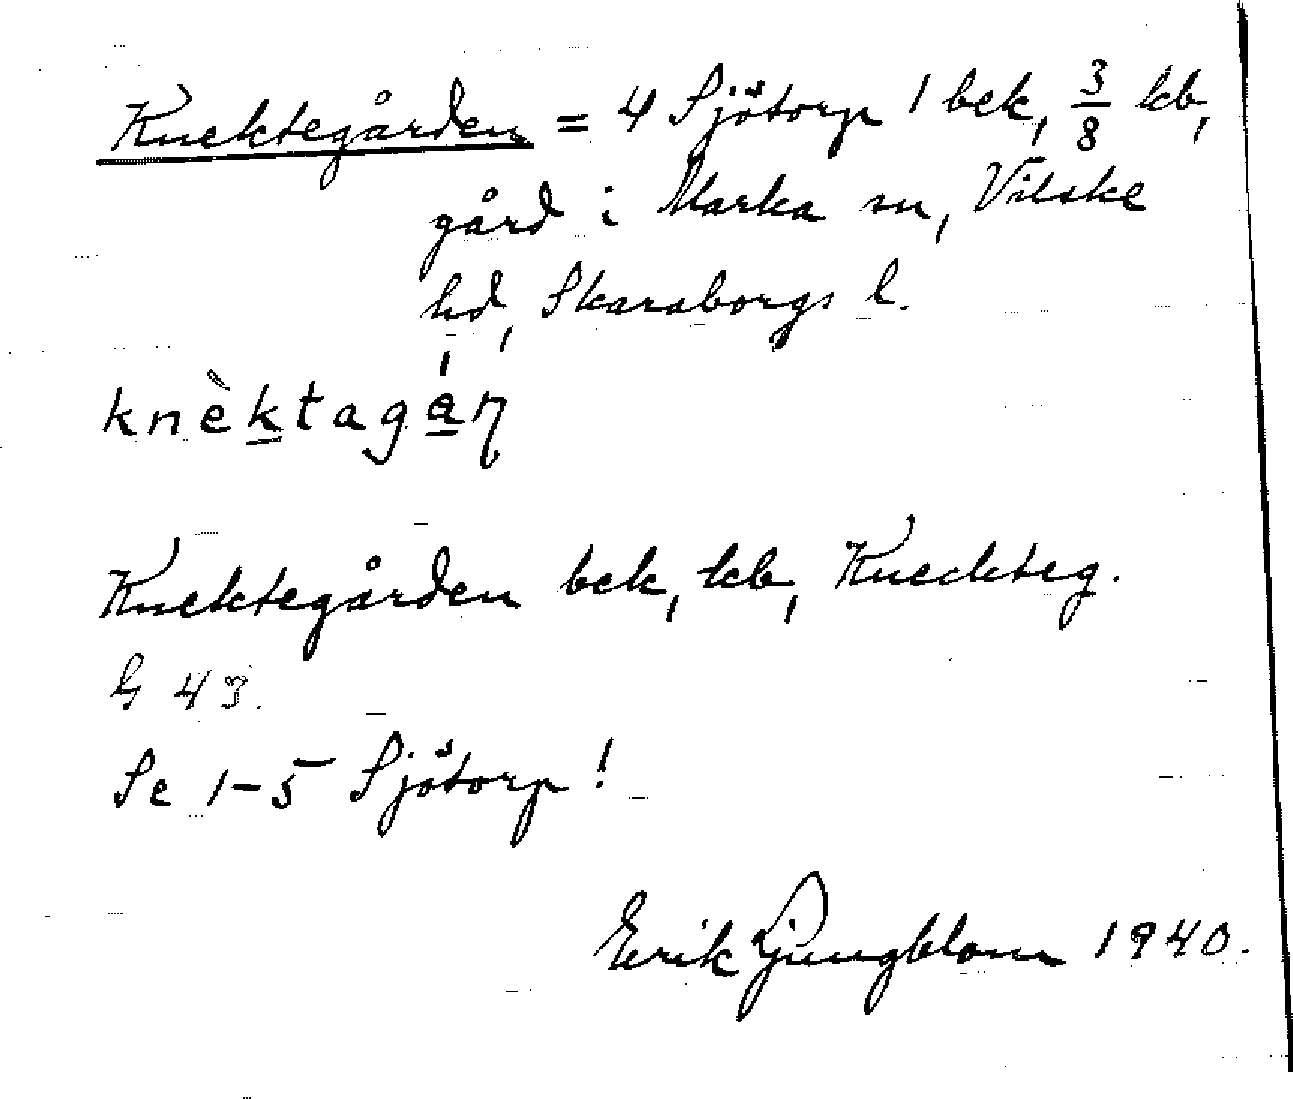 Knektegården = 4 Sjötorp 1 bek, 3/8 kb,
gård i Marka sn, Vilske
hd, Skaraborgs l.
knèktagán
Knektegården bek, kb, Kneckteg.
G 43.
Se 1-5 Sjötorp!
Erik Ljungblom 1940.